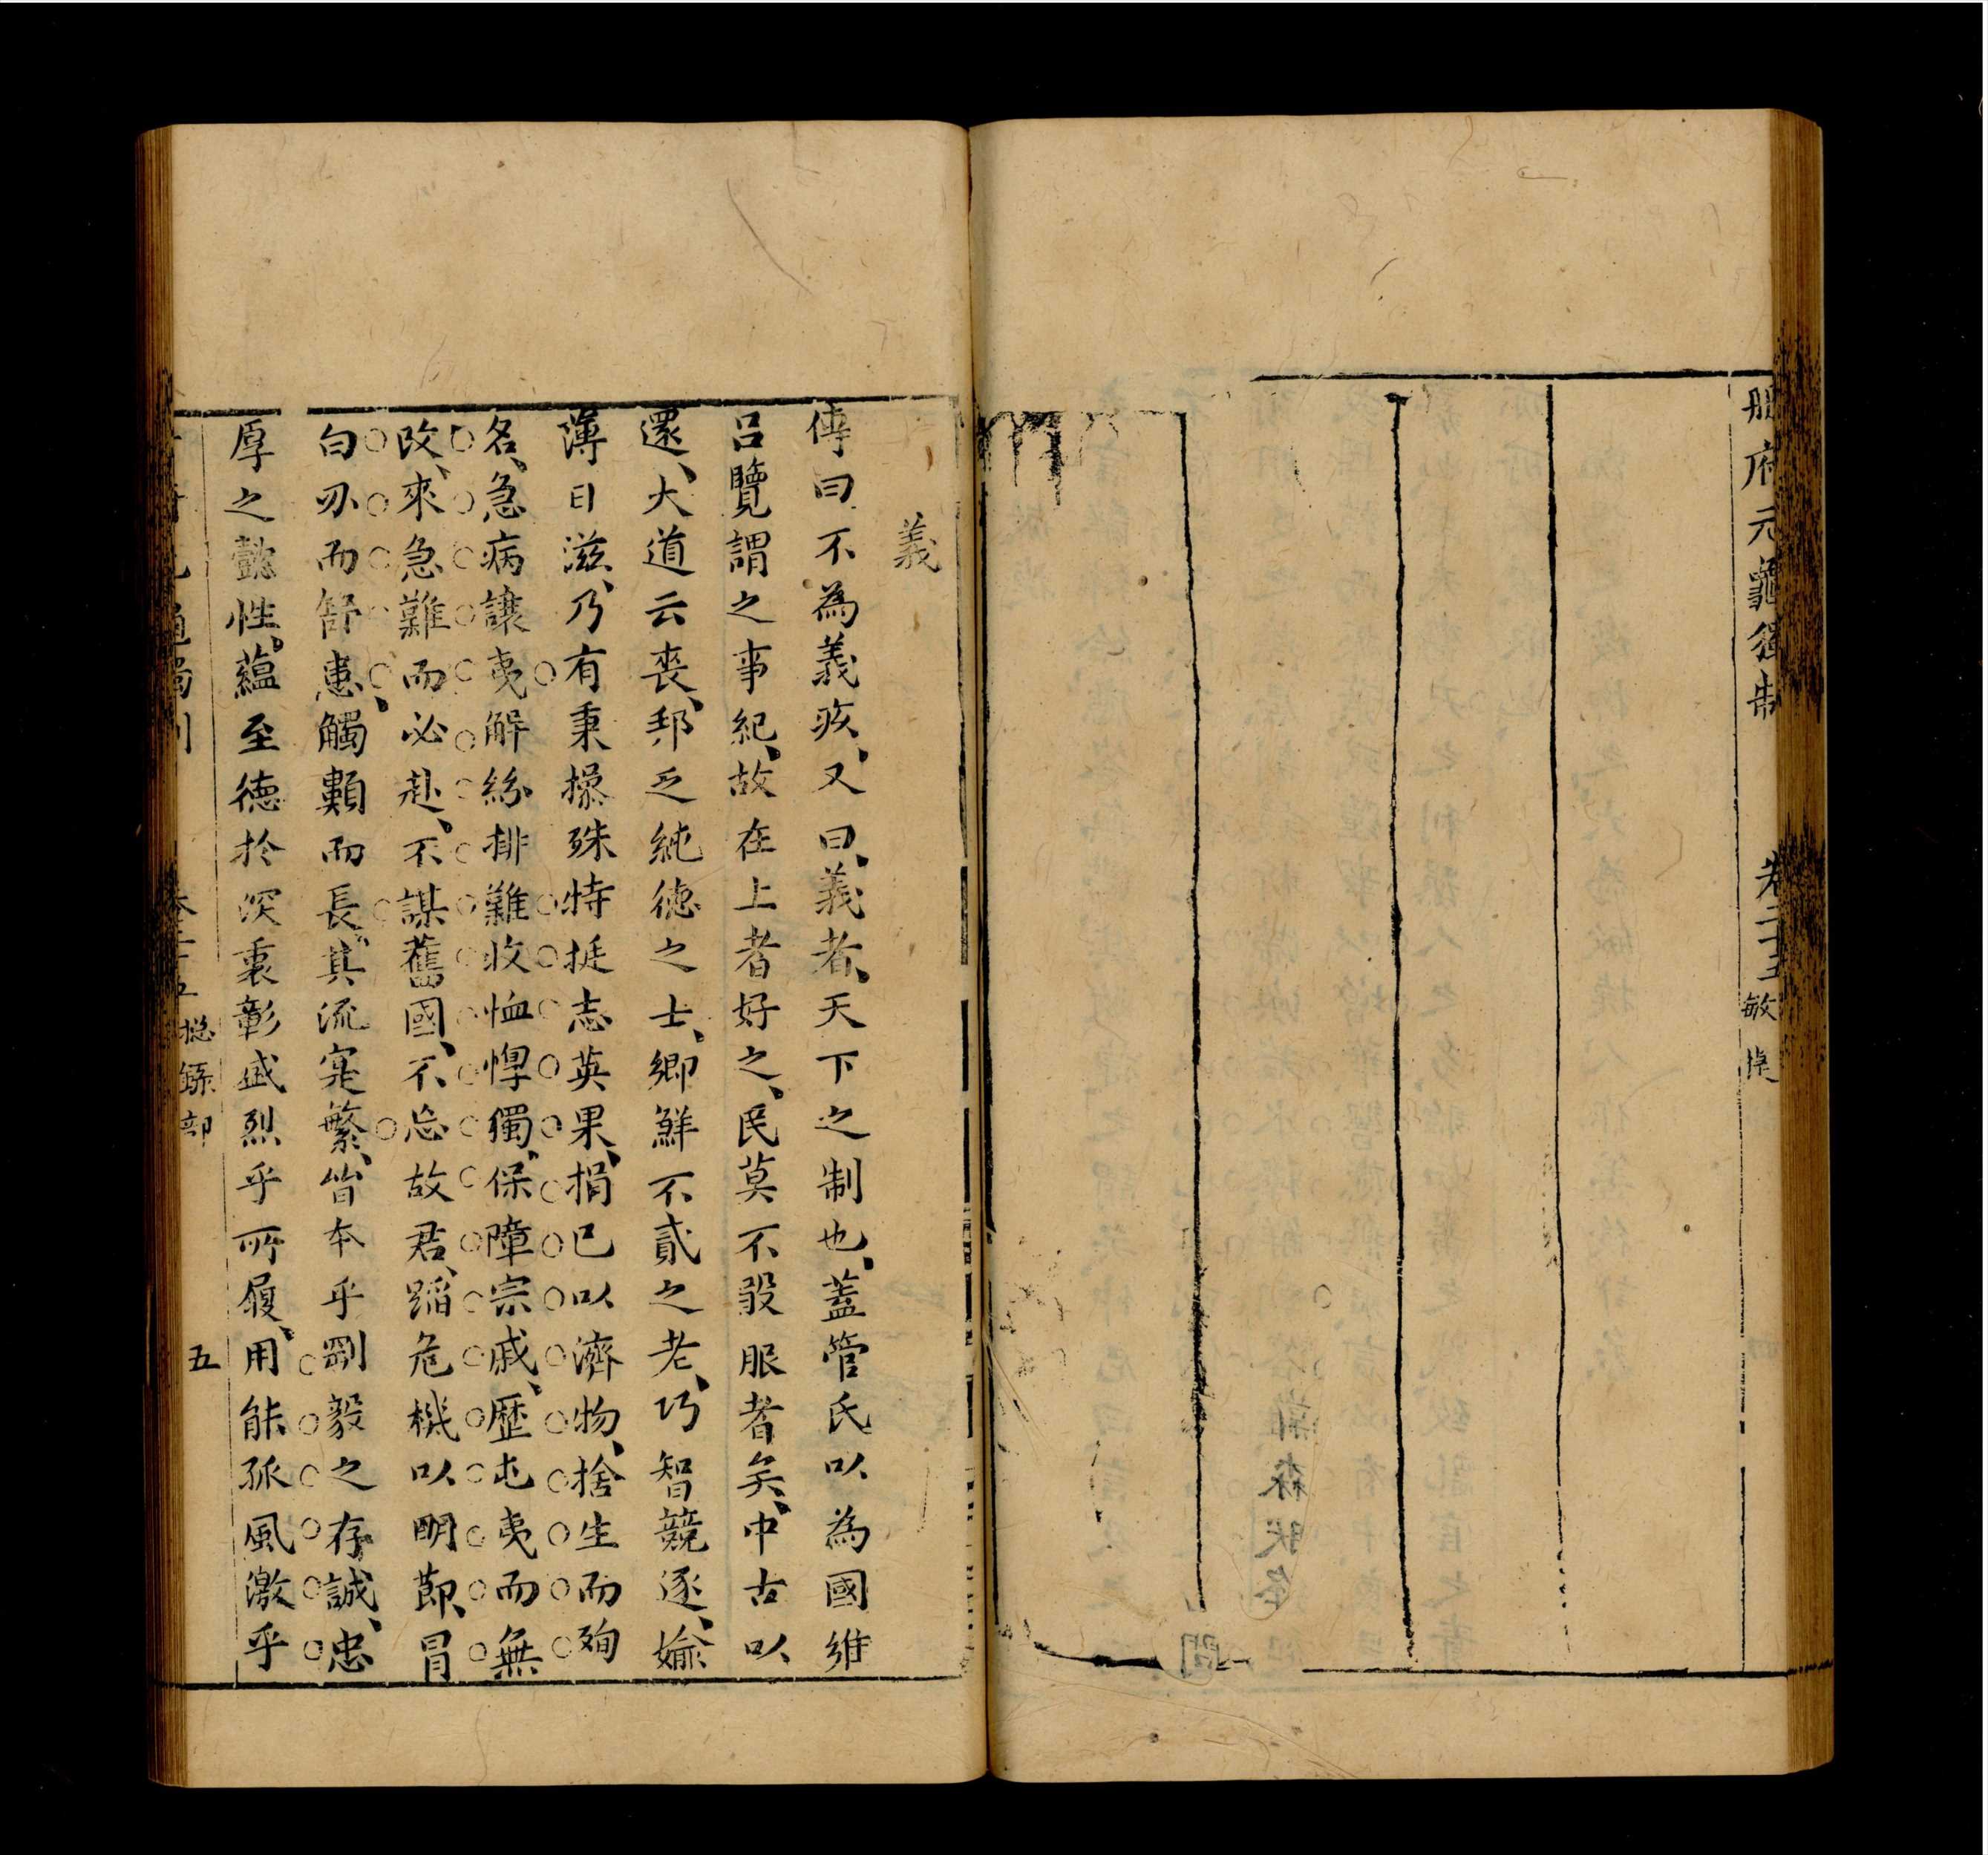 册府元龜獨制
卷二十五
敏捷
義
傳曰不為義疚又曰義者天下之制也蓋管氏以為國維
呂覽謂之事紀故在上者好之民莫不毀服者矣中古以
還大道云喪邦乏純德之士鄉鮮不貳之老巧智競逐婾
薄日滋乃有秉操殊特挺志英果捐已以濟物捨生而殉
名急病讓夷解紛排難收恤惸獨保障宗戚歷屯夷而無
改來急難而必赴不謀舊國不忘故君蹈危機以明節冒
白刃而紓患觸類而長其流寔繁皆本乎剛毅之存誠忠
厚之懿性蘊至德於深衷彰盛烈乎所履用能孤風激乎
總錄部
五